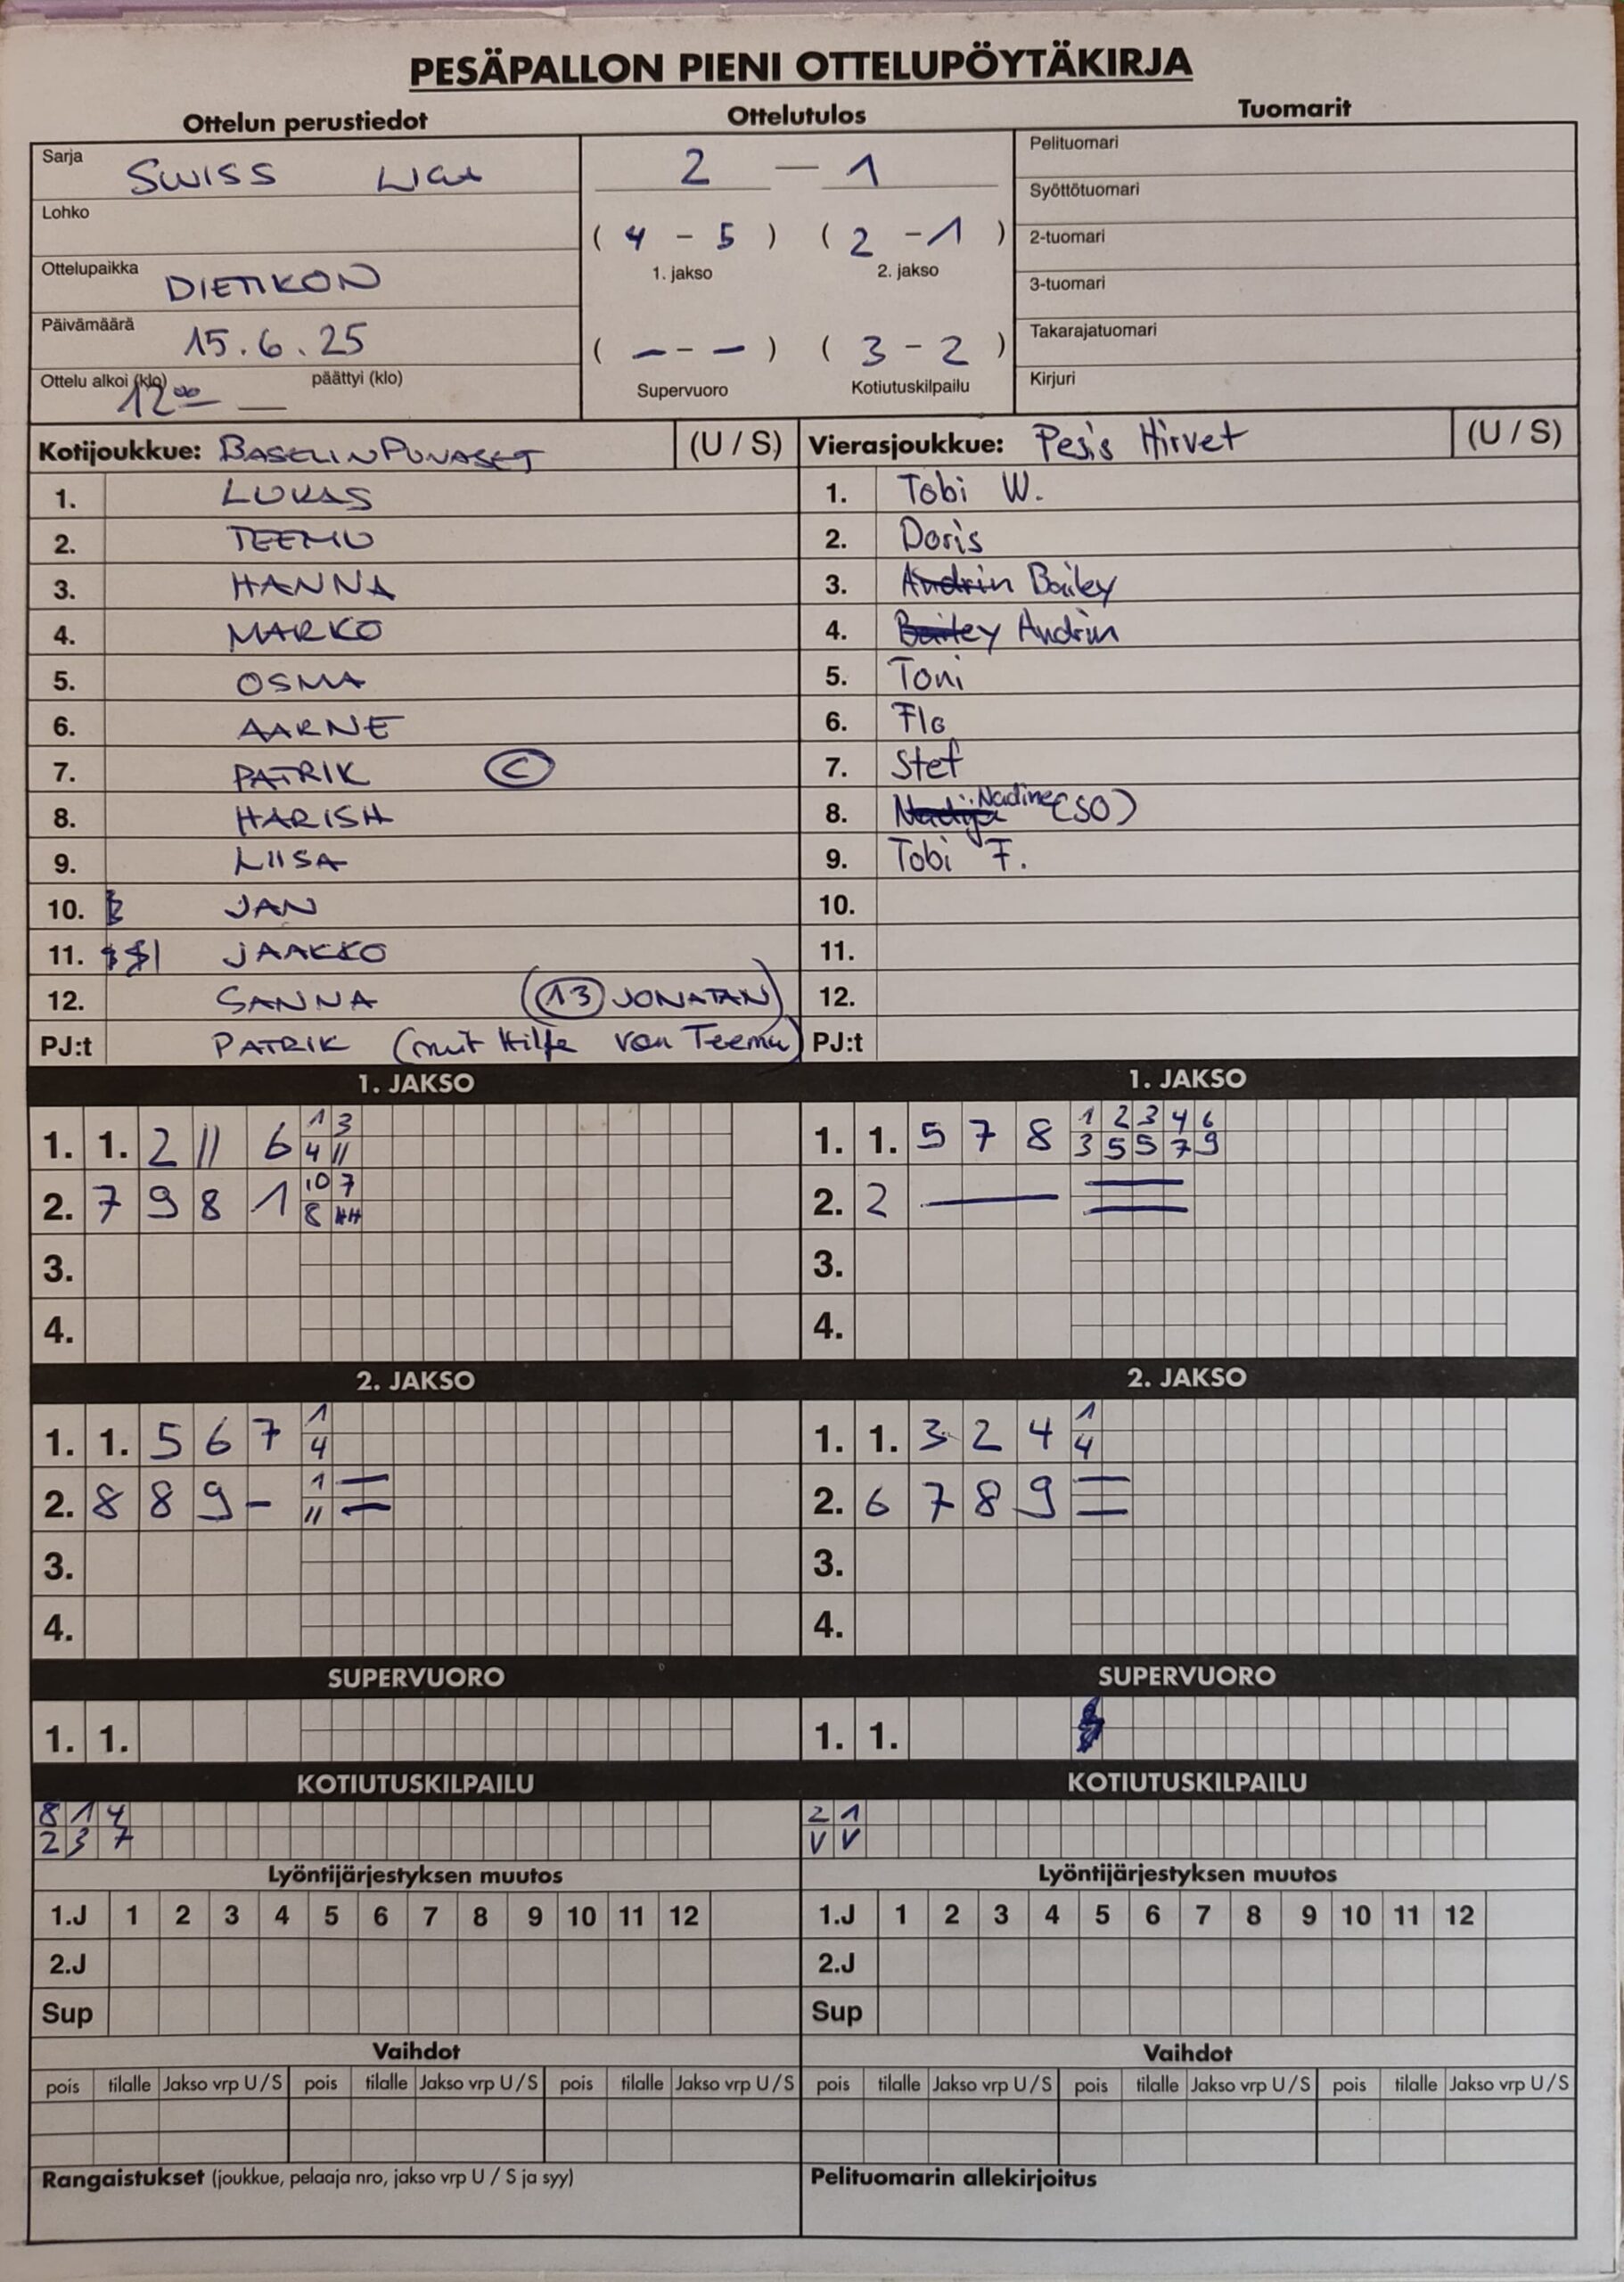 PESÄPALLON PIENI OTTELUPÖYTÄKIRJA
Ottelun perustiedot Ottelutulos Tuomarit
Sarja SWISS LIGA
Lohko
Ottelupaikka DIETIKON
Päivämäärä 15.6.25
Ottelu alkoi (klo) 12⁰⁰ — päättyi (klo)
2 — 1
( 4 - 5 ) ( 2 - 1 )
1. jakso 2. jakso
( — - — ) ( 3 - 2 )
Supervuoro Kotiutuskilpailu
Pelituomari
Syöttötuomari
2-tuomari
3-tuomari
Takarajatuomari
Kirjuri
Kotijoukkue: BASELIN PUNASET (U / S)
1. LUKAS
2. TEEMU
3. HANNA
4. MARKO
5. OSMA
6. AARNE
7. PATRIK C
8. HARISH
9. LIISA
10. JAN
11. JAAKKO
12. SANNA (13 JONATAN)
PJ:t PATRIK (mit Hilfe von Teemu)
Vierasjoukkue: Pesis Hirvet (U / S)
1. Tobi W.
2. Doris
3. Andrin Bailey
4. Bailey Andrin
5. Toni
6. Flo
7. Stef
8. Nadine (SO)
9. Tobi F.
10.
11.
12.
PJ:t
1. JAKSO
1. 1. 2 11 6 1 3
4 11
2. 7 9 8 1 10 7
8
3.
4.
1. JAKSO
1. 1. 5 7 8 1 2 3 4 6
3 5 5 7 9
2. 2 —
3.
4.
2. JAKSO
1. 1. 5 6 7 1
4
2. 8 8 9 - 1
11
3.
4.
2. JAKSO
1. 1. 3 2 4 1
4
2. 6 7 8 9
3.
4.
SUPERVUORO
1. 1.
SUPERVUORO
1. 1.
KOTIUTUSKILPAILU
8 1 4
2 3 7
KOTIUTUSKILPAILU
2 1
V V
Lyöntijärjestyksen muutos
1.J 1 2 3 4 5 6 7 8 9 10 11 12
2.J
Sup
Lyöntijärjestyksen muutos
1.J 1 2 3 4 5 6 7 8 9 10 11 12
2.J
Sup
Vaihdot
pois tilalle Jakso vrp U / S pois tilalle Jakso vrp U / S pois tilalle Jakso vrp U / S
Vaihdot
pois tilalle Jakso vrp U / S pois tilalle Jakso vrp U / S pois tilalle Jakso vrp U / S
Rangaistukset (joukkue, pelaaja nro, jakso vrp U / S ja syy)
Pelituomarin allekirjoitus